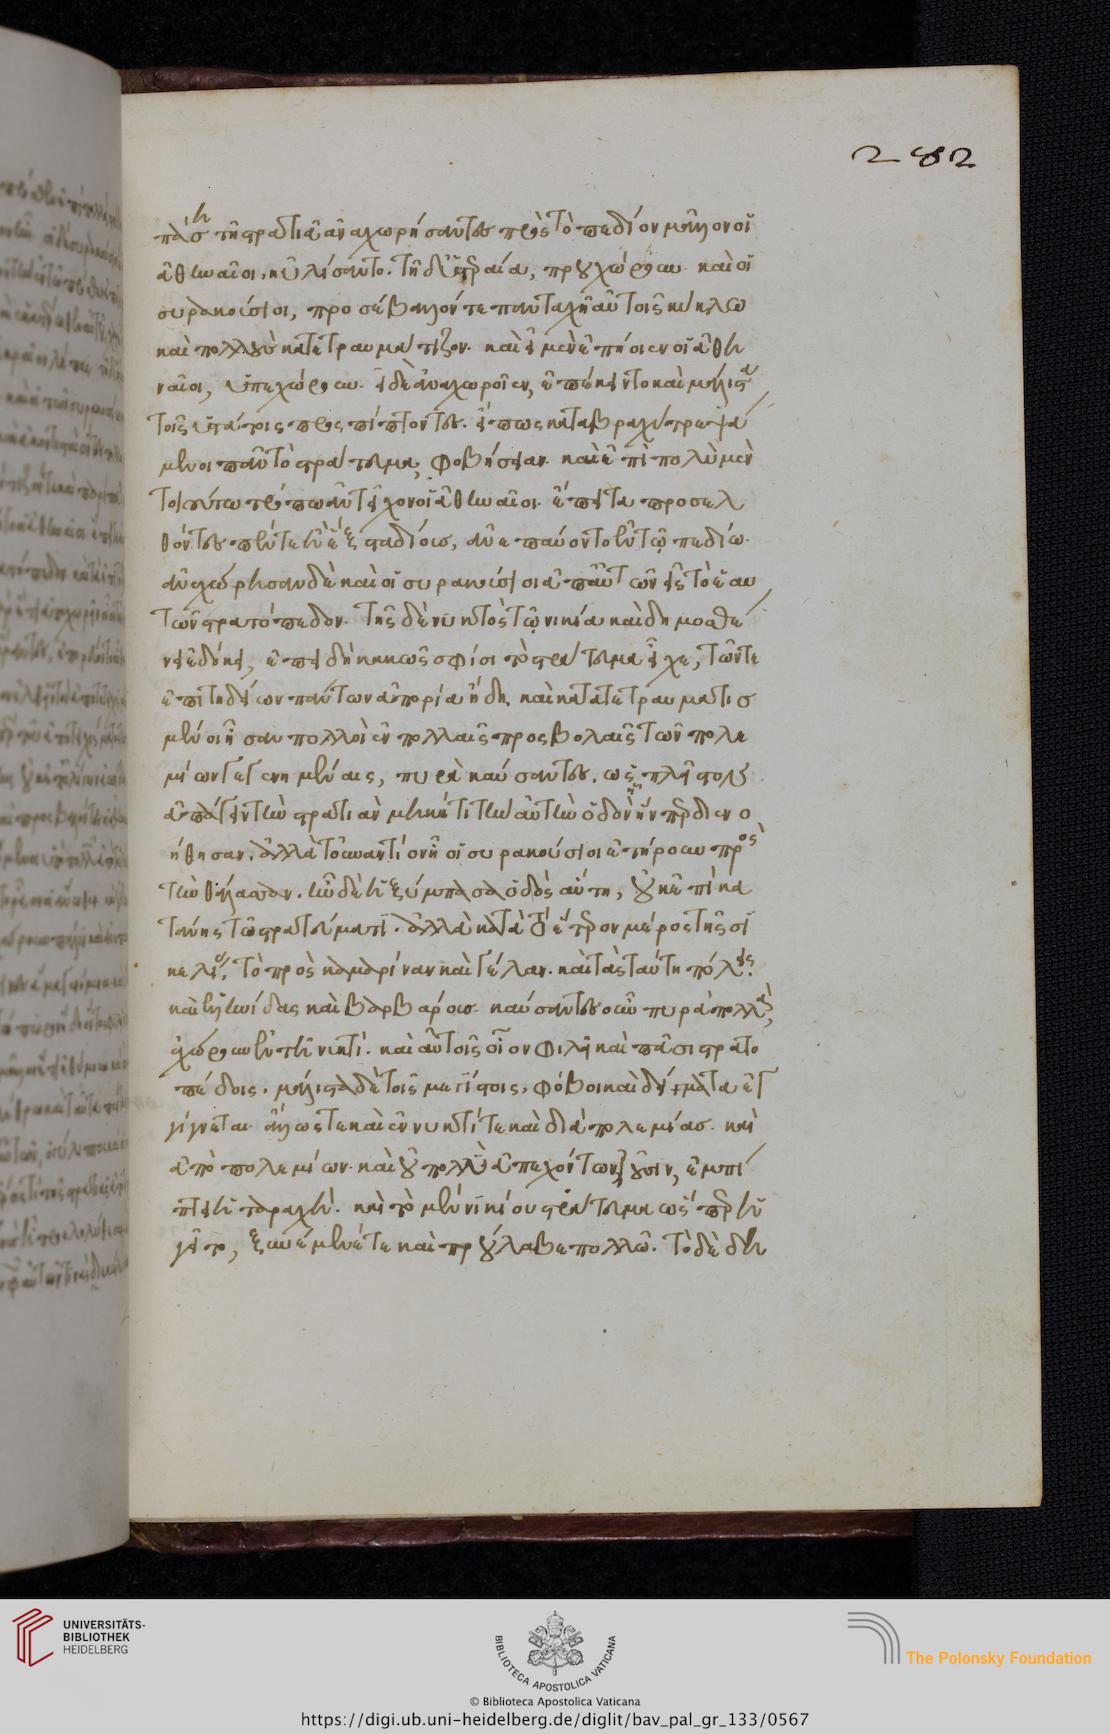 282
πάσῃ τῆ στρατιᾶ ἀναχωρήσαντες πρὸς τὸ πεδίον μᾶλλον οἱ
ἀθηναῖοι, ηὐλίσαντο. τῆ δ' ὑστεραία, προυχώρουν. καὶ οἱ
συρακούσιοι, προσέβαλλόν τε πανταχῆ αὐτοῖς κύκλω
καὶ πολλοὺς κατετραυμάτιζον. καὶ εἰ μὲν ἐπίοιεν οἱ ἀθη
ναῖοι, ὑπεχώρουν. εἰ δὲ ἀναχωροῖεν, ἐπέκειντο καὶ μάλιστα
τοῖς ὑστάτοις προσπίπτοντες. εἴ πως καταβραχὺ τρεψά
μενοι πᾶν τὸ στράτευμα, φοβήσειαν. καὶ ἐπὶ πολὺ μὲν
τοιούτω τρόπω ἀντεῖχον οἱ ἀθηναῖοι. ἔπειτα προσελ
θόντες πέντε ἢ ἓξ σταδίους, ἀνεπαύοντο ἐν τῷ πεδίω.
ἀνεχώρησαν δὲ καὶ οἱ συρακούσιοι ἀπ' αὐτῶν εἰς τὸ ἑαυ
τῶν στρατόπεδον. τῆς δὲ νυκτὸς τῷ νικία καὶ δημοσθέ
νει ἐδόκει, ἐπειδὴ κακῶς σφίσι τὸ στράτευμα εἶχε, τῶν τε
ἐπιτηδείων πάντων ἀπορία ἤδη, καὶ κατατετραυματισ
μένοι ἦσαν πολλοὶ ἐν πολλαῖς προσβολαῖς τῶν πολε
μίων γεγενημέναις, πυρὰ καύσαντες, ὡς πλεῖστα
ἀπάγειν τὴν στρατιὰν μηκέτι τὴν αὐτὴν ὁδὸν ἣν διεν ο
ήθησαν. ἀλλὰ τοὐναντίον ἢ οἱ συρακούσιοι ἐτήρουν πρὸς
τὴν θάλασσαν. ἦν δὲ ἡ ξύμπασα ὁδὸς αὕτη, οὐκ ἐπὶ κα
τάνης τῶ στρατεύματι. ἀλλὰ κατὰ τὸ ἕτερον μέρος τῆς σι
κελίας, τὸ πρὸς καμαρίναν καὶ γέλαν. καὶ τὰς ταύτη πόλεις.
καὶ ἑλληνίδας καὶ βαρβάρους. καύσαντες οὖν πυρὰ πολλὰ,
ἐχώρουν ἐν τῆ νυκτί. καὶ αὐτοῖς οἷον φιλεῖ καὶ πᾶσι στρατο
πέδοις. μάλιστα δὲ τοῖς μεγίστοις, φόβοι καὶ δείματα ἐγ
γίγνεται. ἄλλως τε καὶ ἐν νυκτί τε καὶ διὰ πολεμίας. καὶ
ἀπὸ πολεμίων. καὶ οὐ πολλὺ ἀπεχόντων ἰοῦσιν, ἐμπί
πτει ταραχή. καὶ τὸ μὲν νικίου στράτευμα ὥσπερ ἡ
γεῖτο, ξυνέμενέ τε καὶ προύλαβε πολλῶ. τὸ δὲ δη
UNIVERSITÄTS-
BIBLIOTHEK
HEIDELBERG
BIBLIOTECA APOSTOLICA VATICANA
The Polonsky Foundation
© Biblioteca Apostolica Vaticana
https://digi.ub.uni-heidelberg.de/diglit/bav_pal_gr_133/0567